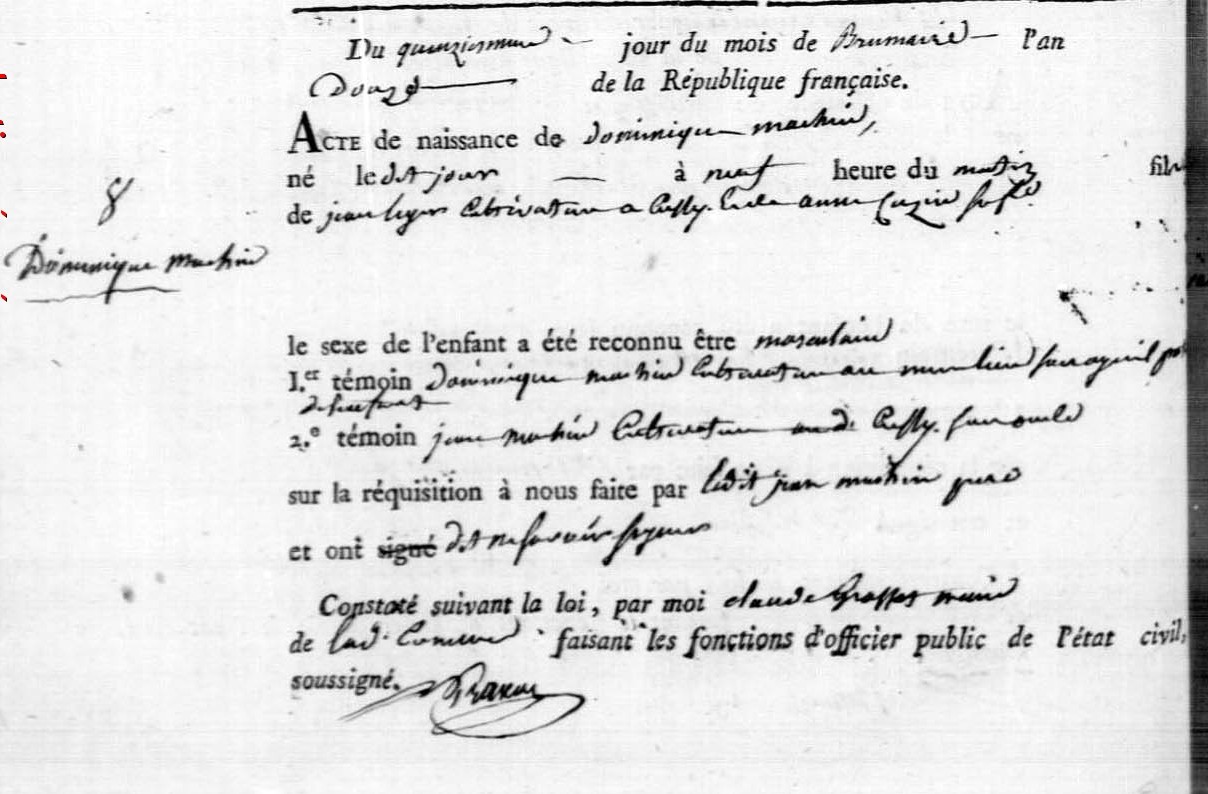 Du quinziemme jour du mois de Brumaire l'an
Douze de la République française.
ACTE de naissance de dominique machin,
né le dit jour à neuf heure du matin fils
de jean cultivateur a Cussy. et de anne
8
Dominique machin
le sexe de l'enfant a été reconnu être masculain
I.er témoin dominique machin cultivateur au
de l'enfant
2.e témoin jean machin Cultivateur de Cussy. son oncle
sur la réquisition à nous faite par ledit jean machin pere
et ont signé dit ne savoir signer
Constaté suivant la loi, par moi claude maire
de lad. Comune faisant les fonctions d'officier public de l'état civil,
soussigné.